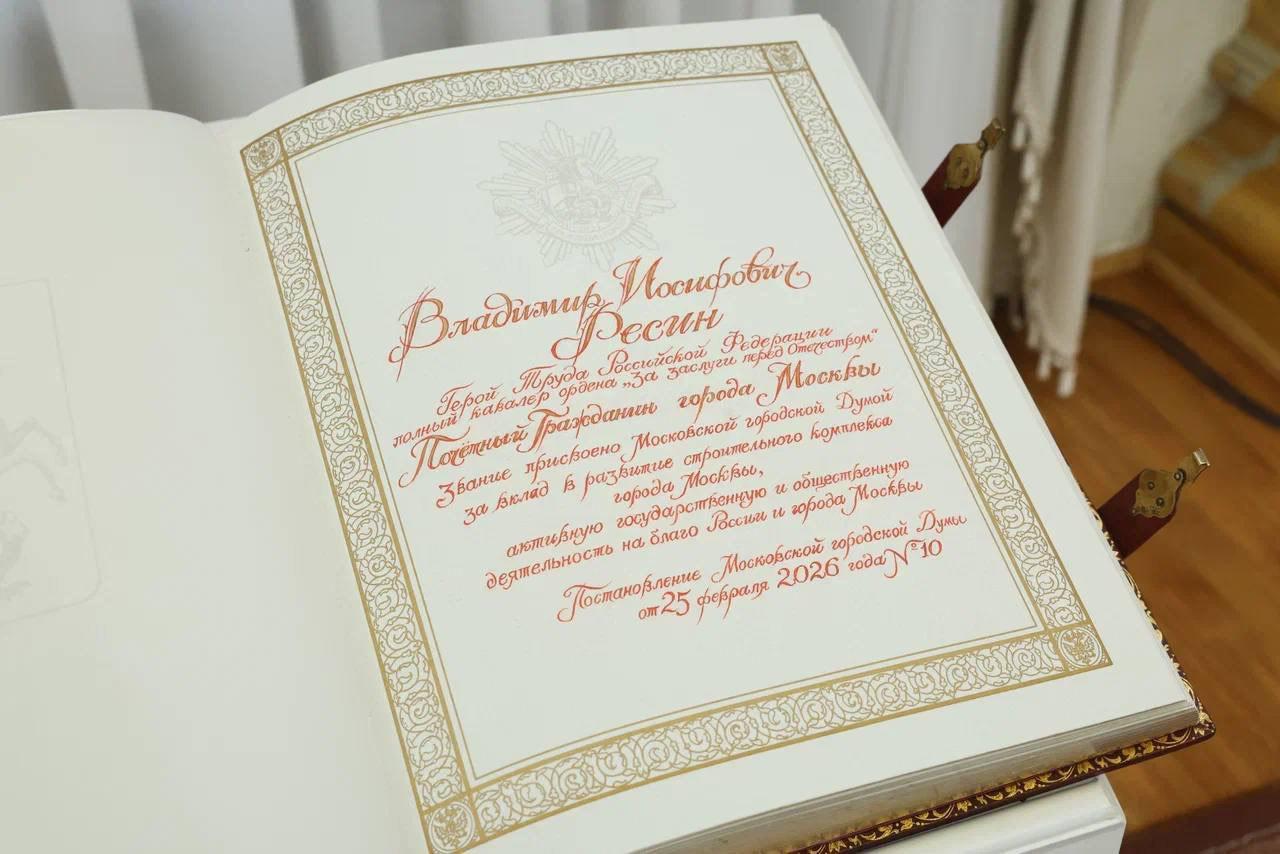 Владимир Иосифович
Ресин
Герой Труда Российской Федерации
полный кавалер ордена „За заслуги перед Отечеством“
Почётный Гражданин города Москвы
Звание присвоено Московской городской Думой
за вклад в развитие строительного комплекса
города Москвы,
активную государственную и общественную
деятельность на благо России и города Москвы
Постановление Московской городской Думы
от 25 февраля 2026 года № 10